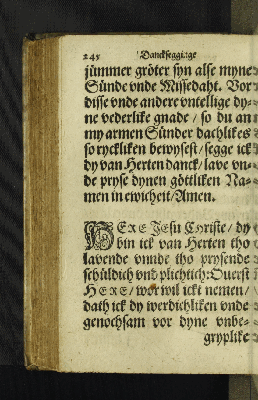 245 Dancksegginge
jümmer gröter syn alse myne
Sünde vnde Missedaht. Vor
disse vnde andere vntellige dy-
ne vederlike gnade / so du an
my armen Sünder dachlikes
so ryckliken bewysest / segge ick
dy van Herten danck / lave vn-
de pryse dynen göttliken Na-
men in ewicheit / Amen.
HERE JEsu Christe / dy
bin ick van Herten tho
lavende vnnde tho prysende
schüldich vnd plichtich: Ouerst
HERE / wor wil ickt nemen /
dath ick dy werdichliken vnde
genochsam vor dyne vnbe-
gryplike